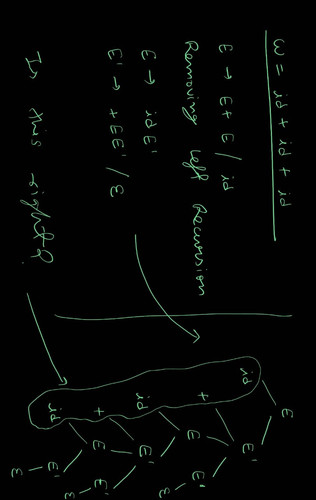 W = id + id + id
E → E + E / id
Removing Left Recursion
E → id E'
E' → + E E' / ε
Is this right?
E
id E'
+ E E'
id E' ε
+ E E'
id E' ε
ε